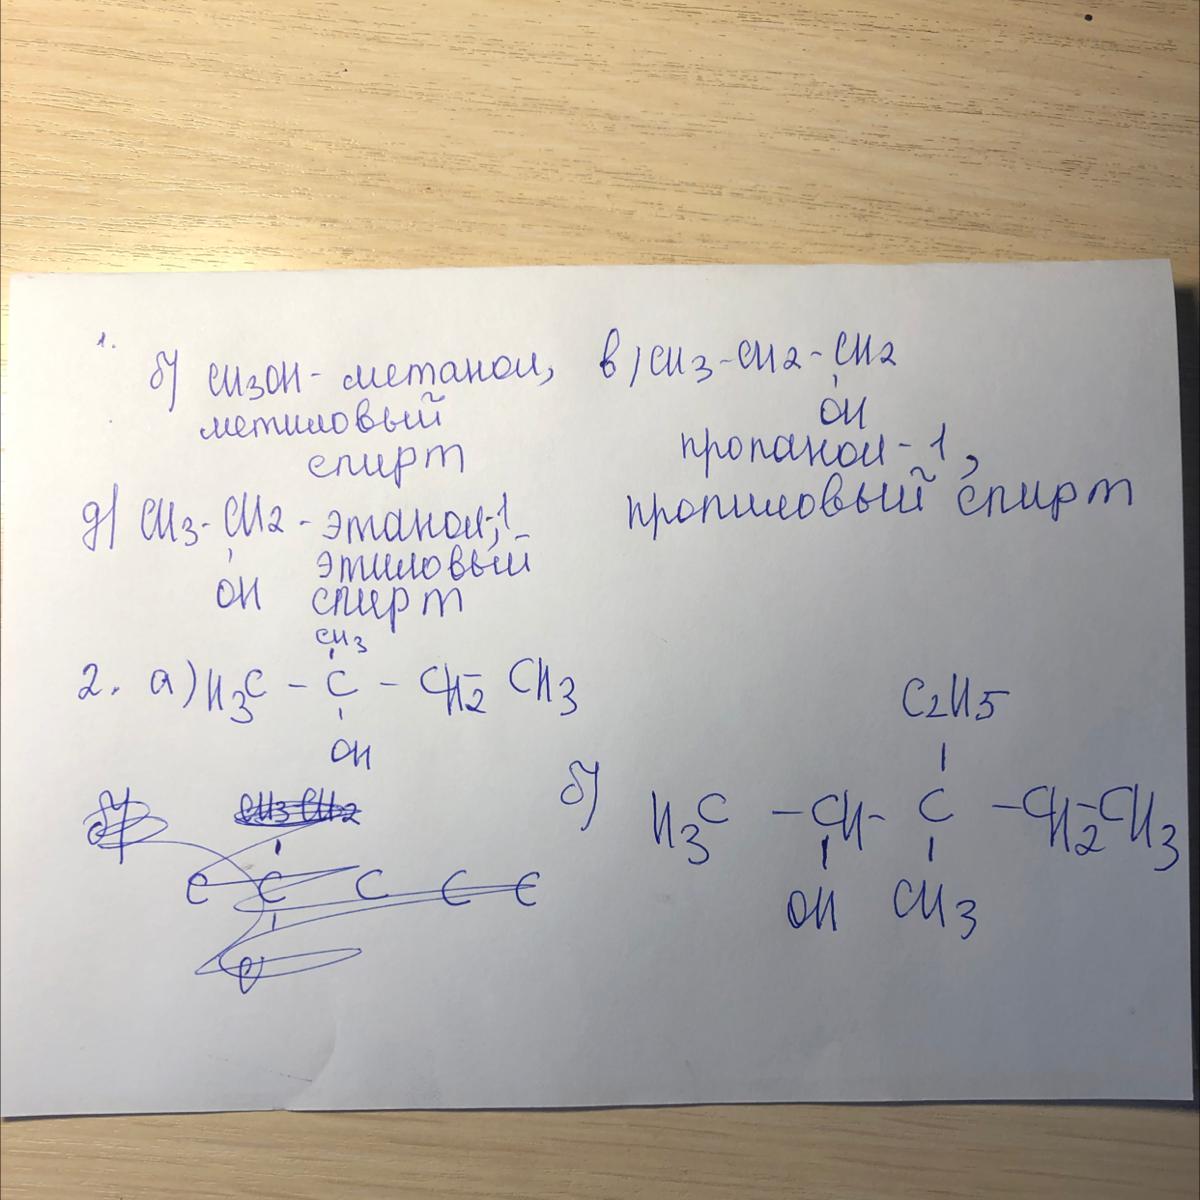 1.
б) CH3OH - метанол,
метиловый
спирт
в) CH3-CH2-CH2
OH
пропанол-1,
пропиловый спирт
д) CH3-CH2 - этанол-1,
OH этиловый
спирт
CH3
2. а) H3C - C - CH2- CH3
OH
C2H5
б) H3C - CH - C - CH2-CH3
OH CH3
б)
CH3 CH2
C C C C C
C